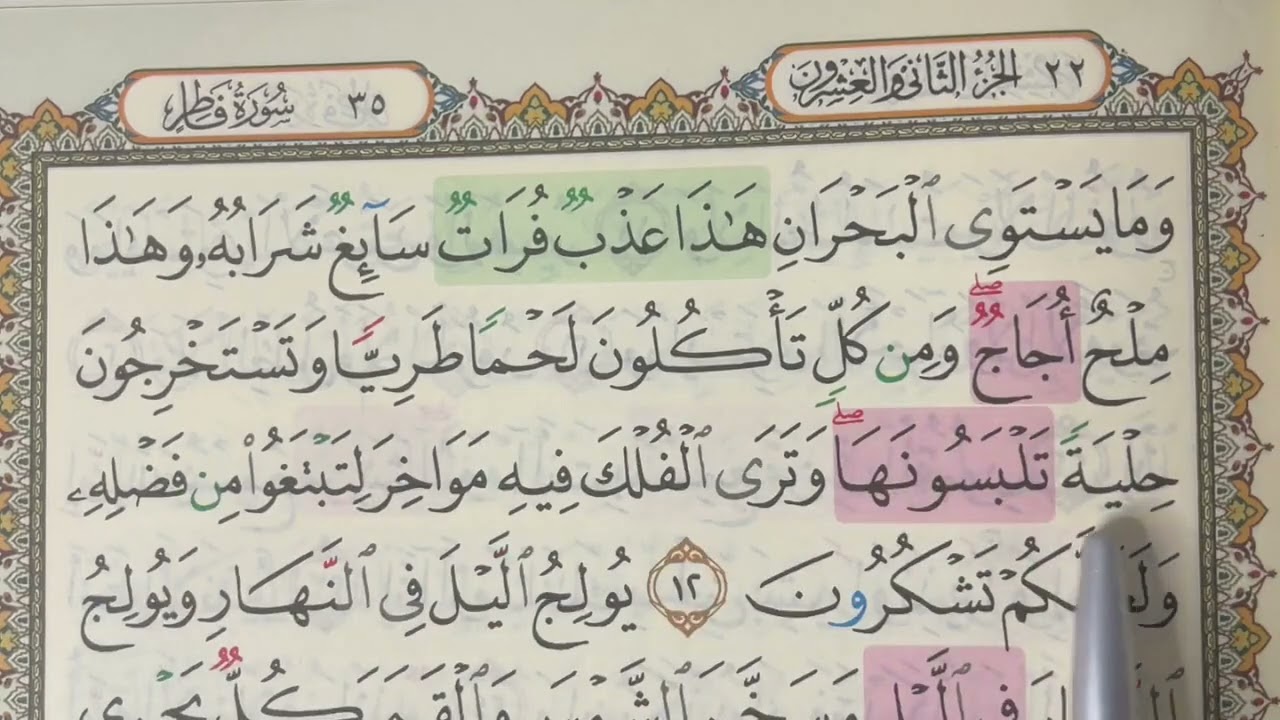 ٢٢ الجُزْءُ الثَّانِي وَالعِشْرُونَ
سُورَةُ فَاطِرٍ ٣٥
وَمَا يَسْتَوِى ٱلْبَحْرَانِ هَٰذَا عَذْبٌ فُرَاتٌ سَآئِغٌ شَرَابُهُۥ وَهَٰذَا
مِلْحٌ أُجَاجٌ ۖ وَمِن كُلٍّ تَأْكُلُونَ لَحْمًا طَرِيًّا وَتَسْتَخْرِجُونَ
حِلْيَةً تَلْبَسُونَهَا ۖ وَتَرَى ٱلْفُلْكَ فِيهِ مَوَاخِرَ لِتَبْتَغُوا۟ مِن فَضْلِهِۦ
تَشْكُرُونَ ١٢ يُولِجُ ٱلَّيْلَ فِى ٱلنَّهَارِ وَيُولِجُ
فِى ٱلَّيْلِ وَسَخَّرَ ٱلشَّمْسَ وَٱلْقَمَرَ كُلٌّ يَجْرِى